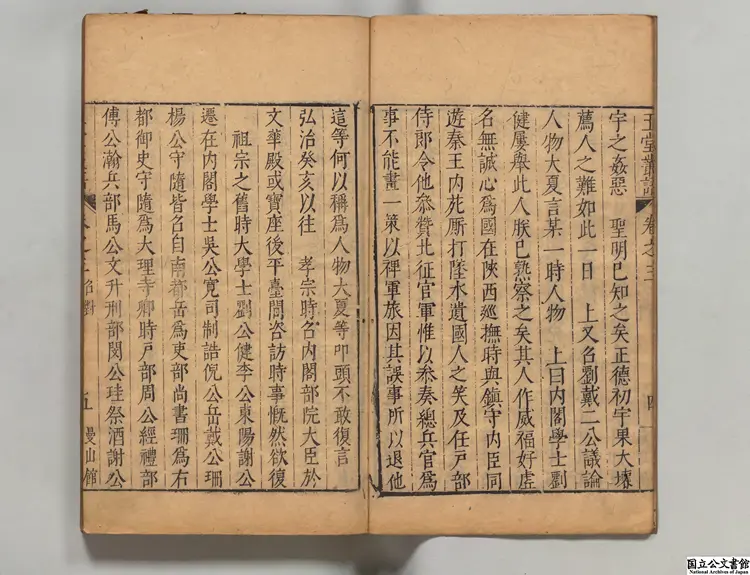 玉堂叢語 卷之三 四
宇之姦惡 聖明已知之矣正德初宇果大壞
薦人之難如此一日 上又名劉戴二公議論
人物大夏言某一時人物 上曰内閣學士劉
健屢舉此人朕已熟察之矣其人作威福好虛
名無誠心爲國在陝西廵撫時與鎮守内臣同
遊秦王内苑厮打墜水遺國人之笑及任戸部
侍郎令他叅贊北征官軍惟以叅奏總兵官爲
事不能畫一策以禆軍旅因其誤事所以退他
這等何以稱爲人物大夏等叩頭不敢復言
弘治癸亥以徃 孝宗時召内閣部院大臣於
文華殿或寶座後平臺間咨訪時事慨然欲復
祖宗之舊時大學士劉公健李公東陽謝公
遷在内閣學士吳公寛司制誥倪公岳戴公珊
楊公守隨皆召自南都岳爲吏部尚書珊爲右
都御史守隨爲大理寺卿時戸部周公經禮部
傅公瀚兵部馬公文升刑部閔公珪祭酒謝公
卷之三 召對 五 曼山館
国立公文書館
National Archives of Japan